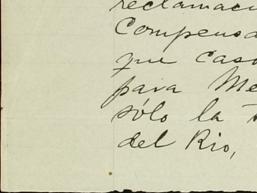 reclamaci
Compensa
que caso
para Me
sólo la
del Rio,